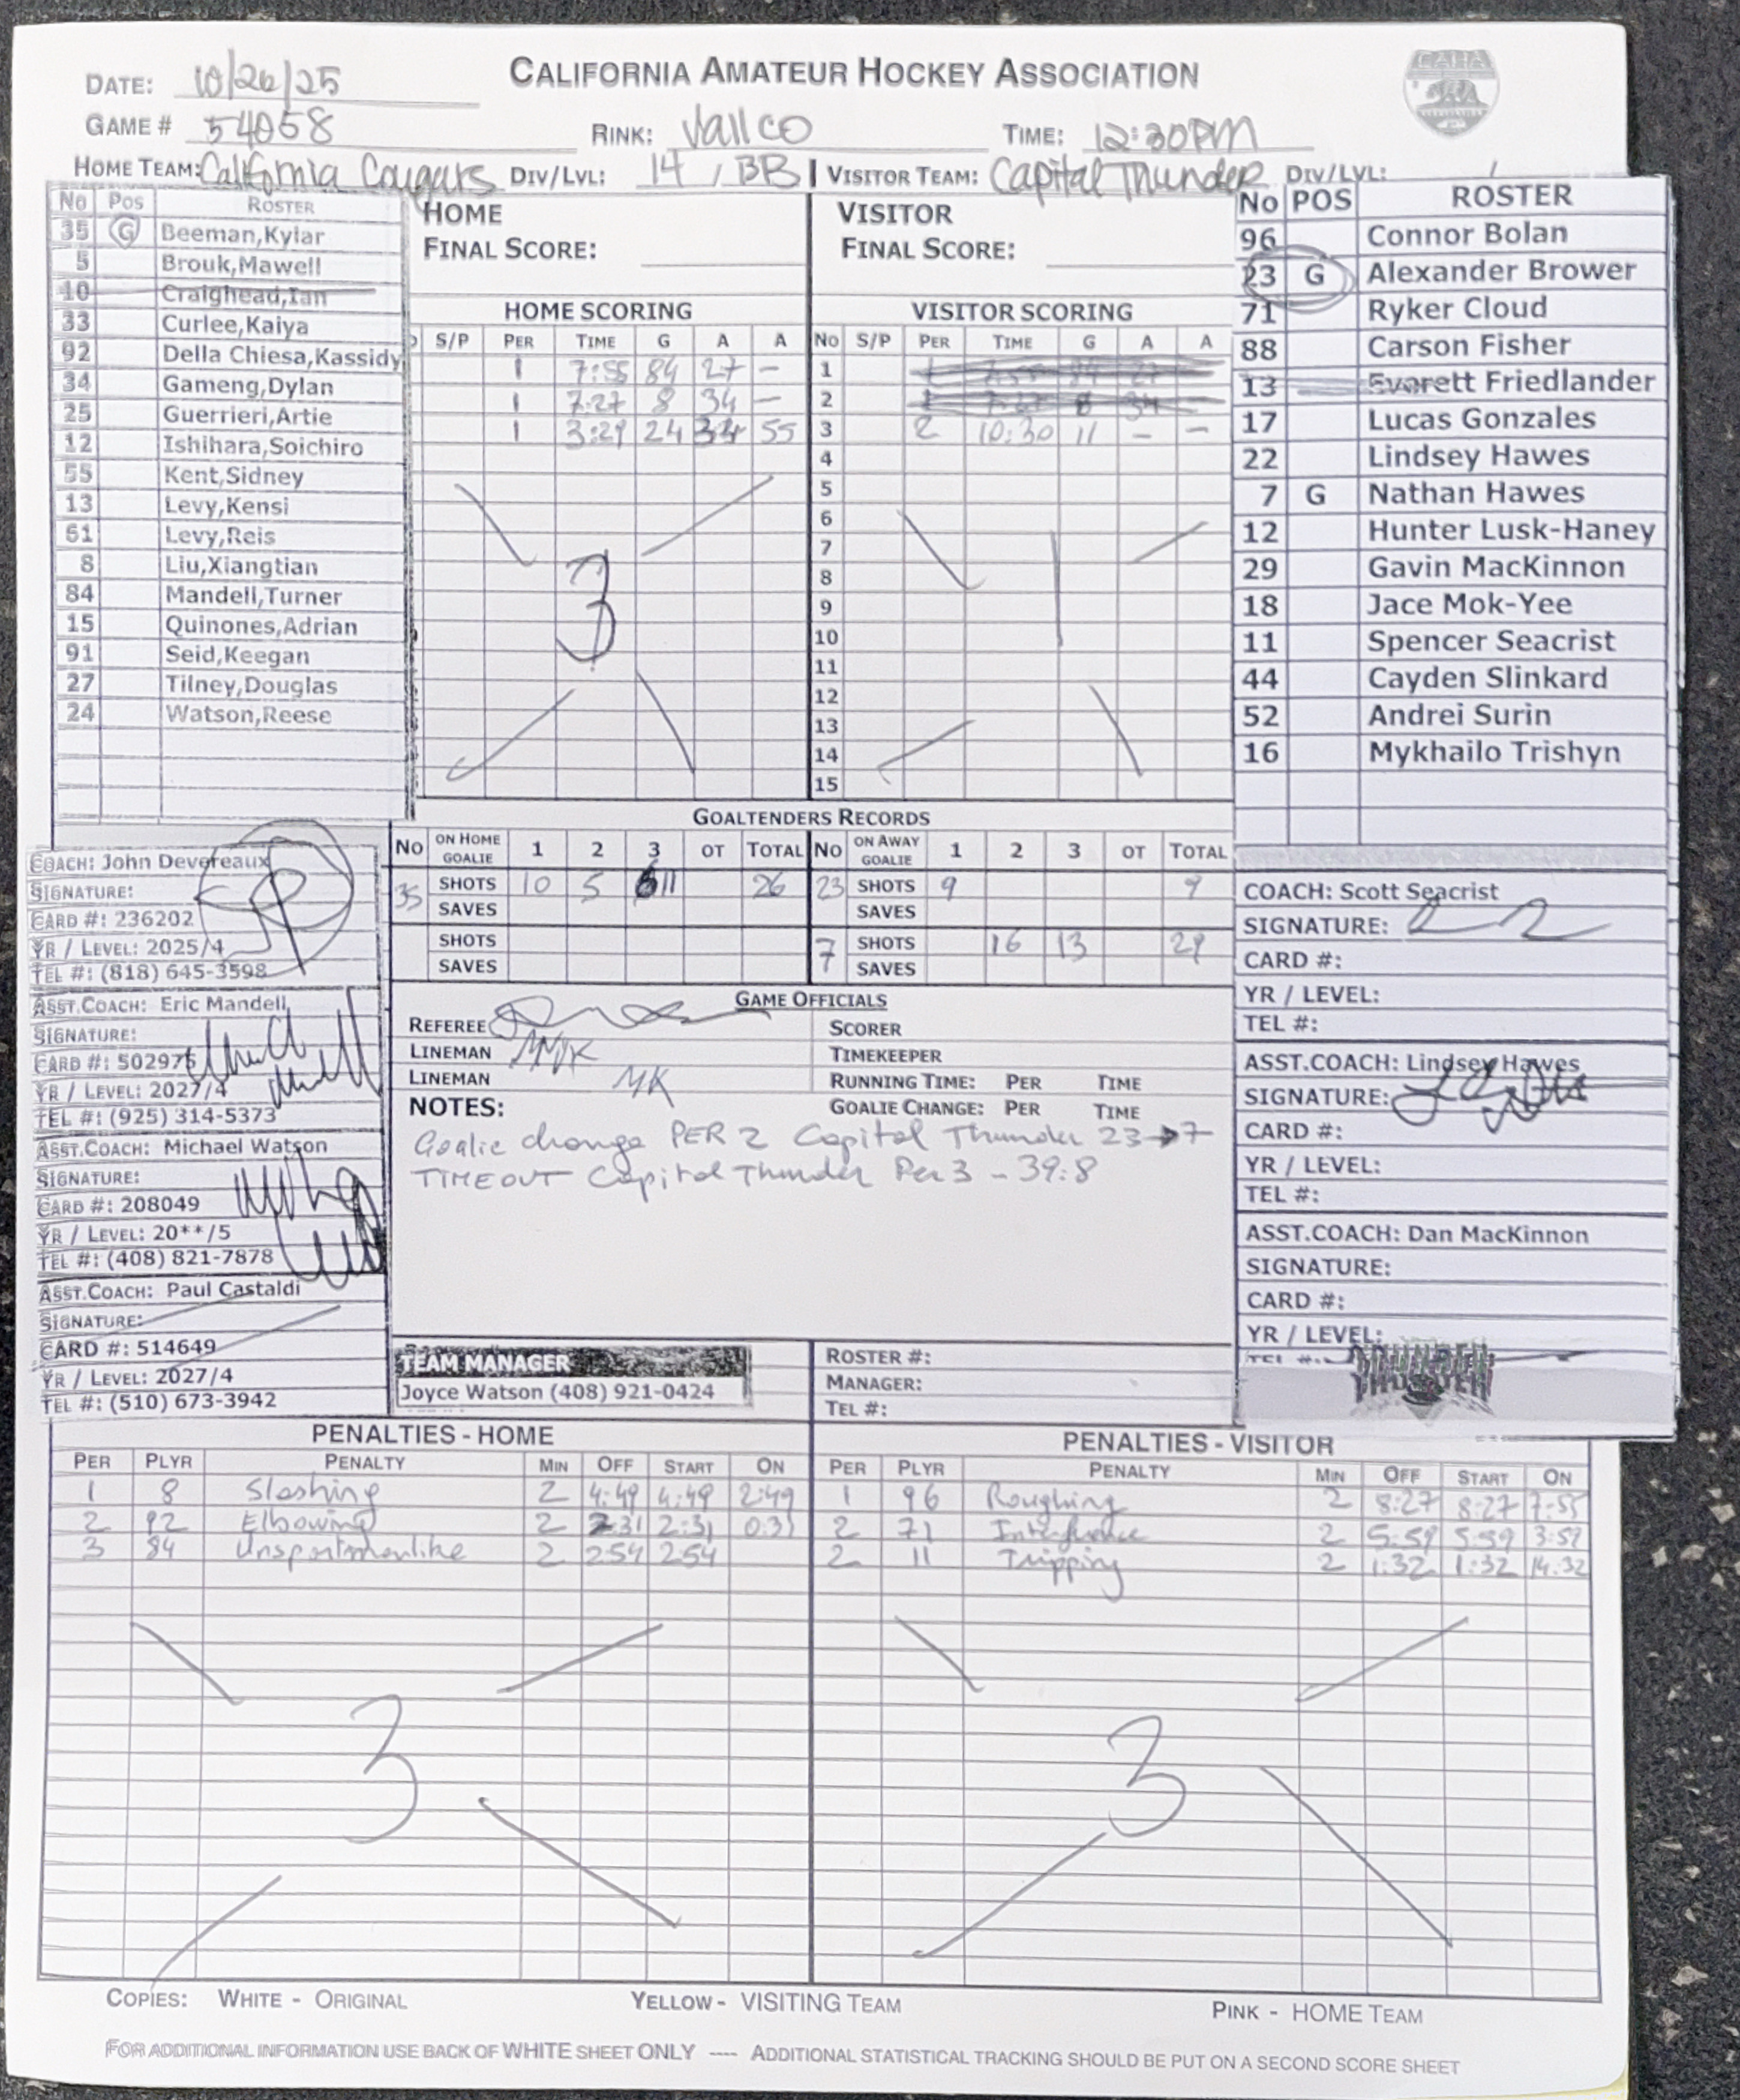 CALIFORNIA AMATEUR HOCKEY ASSOCIATION
CAHA
DATE: 10/26/25
GAME # 54058 RINK: Vallco TIME: 12:30PM
HOME TEAM: California Cougars DIV/LVL: 14 / BB VISITOR TEAM: Capital Thunder DIV/LVL: /
No Pos ROSTER
35 G Beeman,Kylar
5 Brouk,Mawell
10 Craighead,Ian
33 Curlee,Kaiya
92 Della Chiesa,Kassidy
34 Gameng,Dylan
25 Guerrieri,Artie
12 Ishihara,Soichiro
55 Kent,Sidney
13 Levy,Kensi
61 Levy,Reis
8 Liu,Xiangtian
84 Mandell,Turner
15 Quinones,Adrian
91 Seid,Keegan
27 Tilney,Douglas
24 Watson,Reese
HOME
FINAL SCORE:
HOME SCORING
S/P PER TIME G A A
1 7:55 84 27 -
1 7:27 8 34 -
1 3:29 24 34 55
3
VISITOR
FINAL SCORE:
VISITOR SCORING
No S/P PER TIME G A A
1 1 7:55 84 27 -
2 1 7:27 8 34 -
3 2 10:30 11 - -
4
5
6
7
8
9
10
11
12
13
14
15
1
No POS ROSTER
96 Connor Bolan
23 G Alexander Brower
71 Ryker Cloud
88 Carson Fisher
13 Everett Friedlander
17 Lucas Gonzales
22 Lindsey Hawes
7 G Nathan Hawes
12 Hunter Lusk-Haney
29 Gavin MacKinnon
18 Jace Mok-Yee
11 Spencer Seacrist
44 Cayden Slinkard
52 Andrei Surin
16 Mykhailo Trishyn
GOALTENDERS RECORDS
No ON HOME GOALIE 1 2 3 OT TOTAL No ON AWAY GOALIE 1 2 3 OT TOTAL
35 SHOTS 10 5 11 26 23 SHOTS 9 9
SAVES SAVES
SHOTS 7 SHOTS 16 13 29
SAVES SAVES
COACH: John Devereaux
SIGNATURE:
CARD #: 236202
YR / LEVEL: 2025/4
TEL #: (818) 645-3598
ASST.COACH: Eric Mandell
SIGNATURE:
CARD #: 502975
YR / LEVEL: 2027/4
TEL #: (925) 314-5373
ASST.COACH: Michael Watson
SIGNATURE:
CARD #: 208049
YR / LEVEL: 20**/5
TEL #: (408) 821-7878
ASST.COACH: Paul Castaldi
SIGNATURE:
CARD #: 514649
YR / LEVEL: 2027/4
TEL #: (510) 673-3942
GAME OFFICIALS
REFEREE SCORER
LINEMAN TIMEKEEPER
LINEMAN MK RUNNING TIME: PER TIME
NOTES: GOALIE CHANGE: PER TIME
Goalie change PER 2 Capitol Thunder 23→7
TIMEOUT Capitol Thunder Per 3 - 39:8
TEAM MANAGER
Joyce Watson (408) 921-0424
ROSTER #:
MANAGER:
TEL #:
COACH: Scott Seacrist
SIGNATURE:
CARD #:
YR / LEVEL:
TEL #:
ASST.COACH: Lindsey Hawes
SIGNATURE:
CARD #:
YR / LEVEL:
TEL #:
ASST.COACH: Dan MacKinnon
SIGNATURE:
CARD #:
YR / LEVEL:
TEL #:
PENALTIES - HOME
PER PLYR PENALTY MIN OFF START ON
1 8 Slashing 2 4:49 4:49 2:49
2 92 Elbowing 2 2:31 2:31 0:31
3 84 Unsportmanlike 2 2:54 2:54
3
PENALTIES - VISITOR
PER PLYR PENALTY MIN OFF START ON
1 96 Roughing 2 8:27 8:27 7:55
2 71 Interference 2 5:59 5:59 3:59
2 11 Tripping 2 1:32 1:32 14:32
3
COPIES: WHITE - ORIGINAL YELLOW - VISITING TEAM PINK - HOME TEAM
FOR ADDITIONAL INFORMATION USE BACK OF WHITE SHEET ONLY ---- ADDITIONAL STATISTICAL TRACKING SHOULD BE PUT ON A SECOND SCORE SHEET